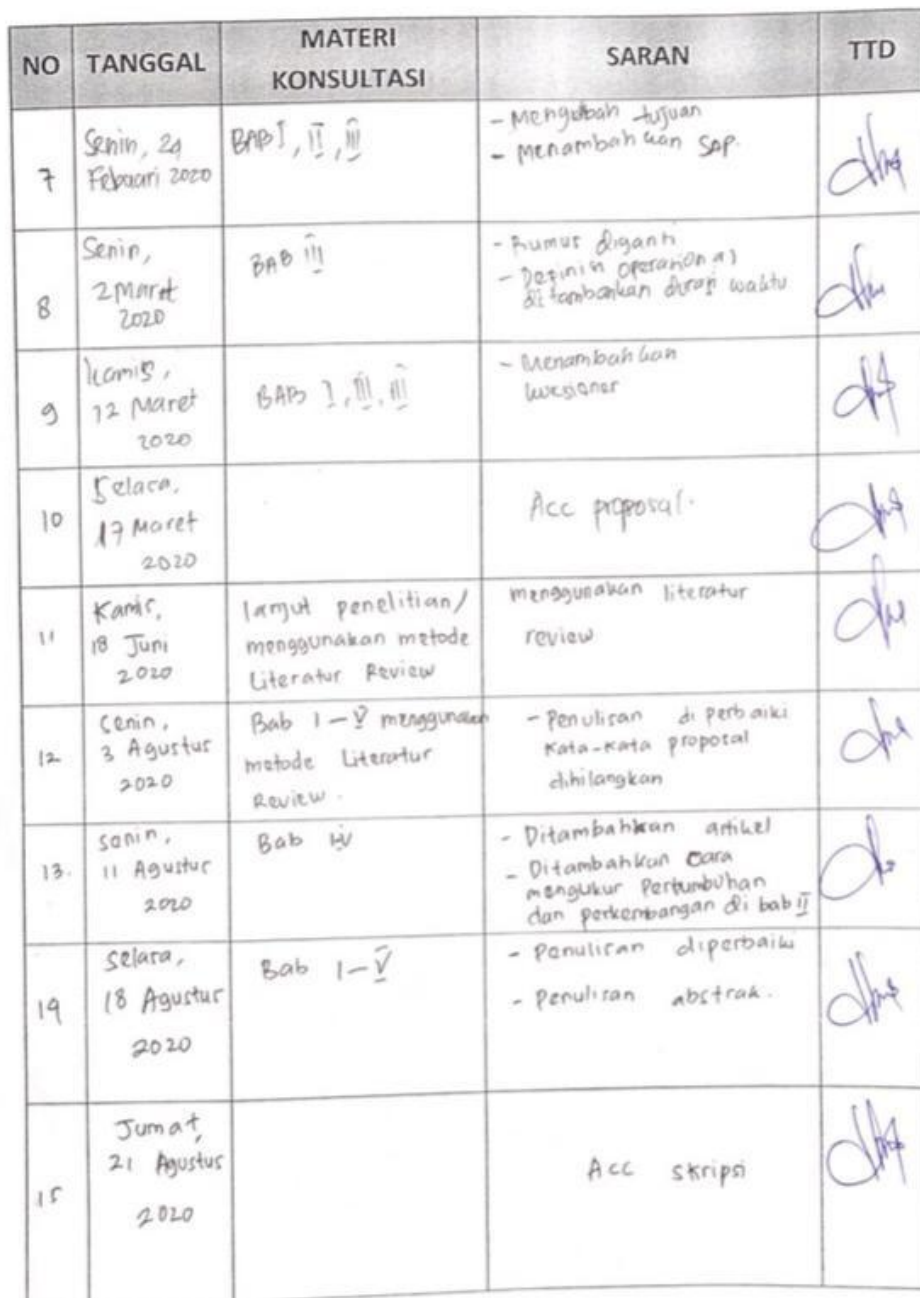 NO TANGGAL MATERI KONSULTASI SARAN TTD
7
Senin, 24
Febuari 2020
BAB I, II, III
- Mengubah tujuan
- Menambahkan SAP.
8
Senin,
2 Maret
2020
BAB III
- Rumus diganti
- Definisi Operasional
ditambahkan durasi waktu
9
Kamis,
12 Maret
2020
BAB I, III, III
- Menambahkan
kuesioner
10
Selasa,
17 Maret
2020
Acc proposal.
11
Kamis,
18 Juni
2020
lanjut penelitian/
menggunakan metode
Literatur Review
menggunakan literatur
review
12
Senin,
3 Agustus
2020
Bab I - V menggunakan
metode Literatur
Review.
- Penulisan diperbaiki
Kata-kata proposal
dihilangkan
13.
senin,
11 Agustus
2020
Bab IV
- Ditambahkan artikel
- Ditambahkan Cara
mengukur Pertumbuhan
dan perkembangan di bab II
14
Selasa,
18 Agustus
2020
Bab I - V
- Penulisan diperbaiki
- Penulisan abstrak.
15
Jumat,
21 Agustus
2020
Acc skripsi